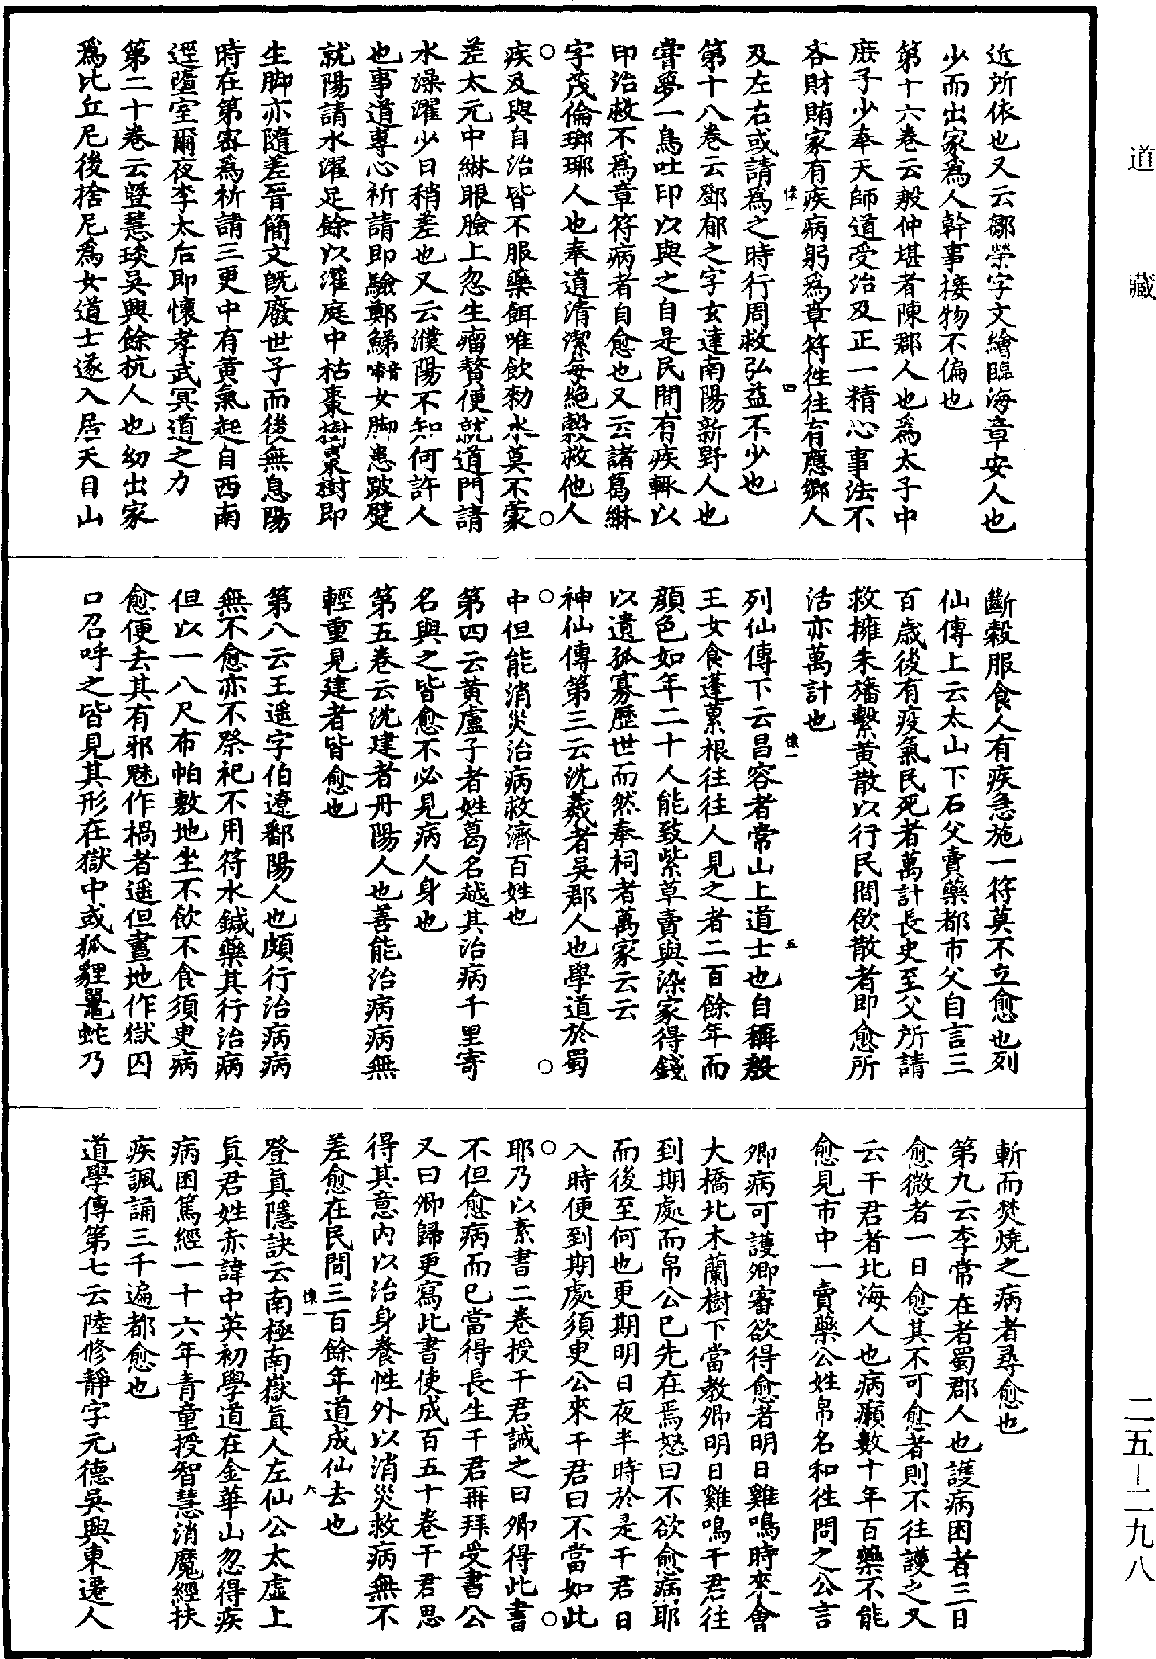 道藏
二五－二九八
近所依也又云鄒榮字文繪臨海章安人也
少而出家爲人幹事接物不偏也
第十六卷云殷仲堪者陳郡人也爲太子中
庶子少奉天師道受治及正一精心事法不
吝財賄家有疾病躬爲章符往往有應鄉人
及左右或請爲之時行周救弘益不少也
懷一
四
第十八卷云鄧郁之字玄達南陽新野人也
嘗夢一鳥吐印以與之自是民間有疾輒以
印治救不爲章符病者自愈也又云諸葛綝
字茂倫瑯琊人也奉道清潔每絕穀救他人
疾及與自治皆不服藥餌唯飲勑水莫不蒙
差太元中綝眼臉上忽生瘤贅便就道門請
水澡濯少日稍差也又云濮陽不知何許人
也事道專心祈請即驗鄭鯑女脚患跛躄
就陽請水濯足餘以灌庭中枯棗樹棗樹即
生脚亦隨差晉簡文旣廢世子而後無息陽
時在第密爲祈請三更中有黄氣起自西南
逕墮室爾夜李太后即懷孝武冥道之力
第二十卷云曁慧琰吳興餘杭人也幼出家
爲比丘尼後捨尼爲女道士遂入居天目山
斷穀服食人有疾急施一符莫不立愈也列
仙傳上云太山下石父賣藥都市父自言三
百歲後有疫氣民死者萬計長史至父所請
救擁朱旛繫黄散以行民間飲散者即愈所
活亦萬計也
懷一
五
列仙傳下云昌容者常山上道士也自稱殷
王女食蓬蔂根往往人見之者二百餘年而
顏色如年二十人能致紫草賣與染家得錢
以遺孤寡歷世而然奉祠者萬家云云
神仙傳第三云沈羲者吳郡人也學道於蜀
中但能消災治病救濟百姓也
第四云黄盧子者姓葛名越其治病千里寄
名與之皆愈不必見病人身也
第五卷云沈建者丹陽人也善能治病病無
輕重見建者皆愈也
第八云王遥字伯遼鄱陽人也頗行治病病
無不愈亦不祭祀不用符水鍼藥其行治病
但以一八尺布帕敷地坐不飲不食須臾病
愈便去其有邪魅作禍者遥但畫地作獄因
口召呼之皆見其形在獄中或狐貍鼉蛇乃
斬而焚燒之病者尋愈也
第九云李常在者蜀郡人也護病困者三日
愈微者一日愈其不可愈者則不往護之又
云干君者北海人也病癩數十年百藥不能
愈見市中一賣藥公姓帛名和往問之公言
卿病可護卿審欲得愈者明日雞鳴時來會
大橋北木蘭樹下當教卿明日雞鳴干君往
到期處而帛公已先在焉怒曰不欲愈病耶
而後至何也更期明日夜半時於是干君日
入時便到期處須臾公來干君曰不當如此
耶乃以素書二卷授干君誡之曰卿得此書
不但愈病而已當得長生干君再拜受書公
又曰卿歸更寫此書使成百五十卷干君思
得其意內以治身養性外以消災救病無不
差愈在民間三百餘年道成仙去也
懷一
六
登眞隱訣云南極南嶽眞人左仙公太虛上
眞君姓赤諱中英初學道在金華山忽得疾
病困篤經一十六年青童授智慧消魔經扶
疾諷誦三千遍都愈也
道學傳第七云陸修靜字元德吳興東遷人